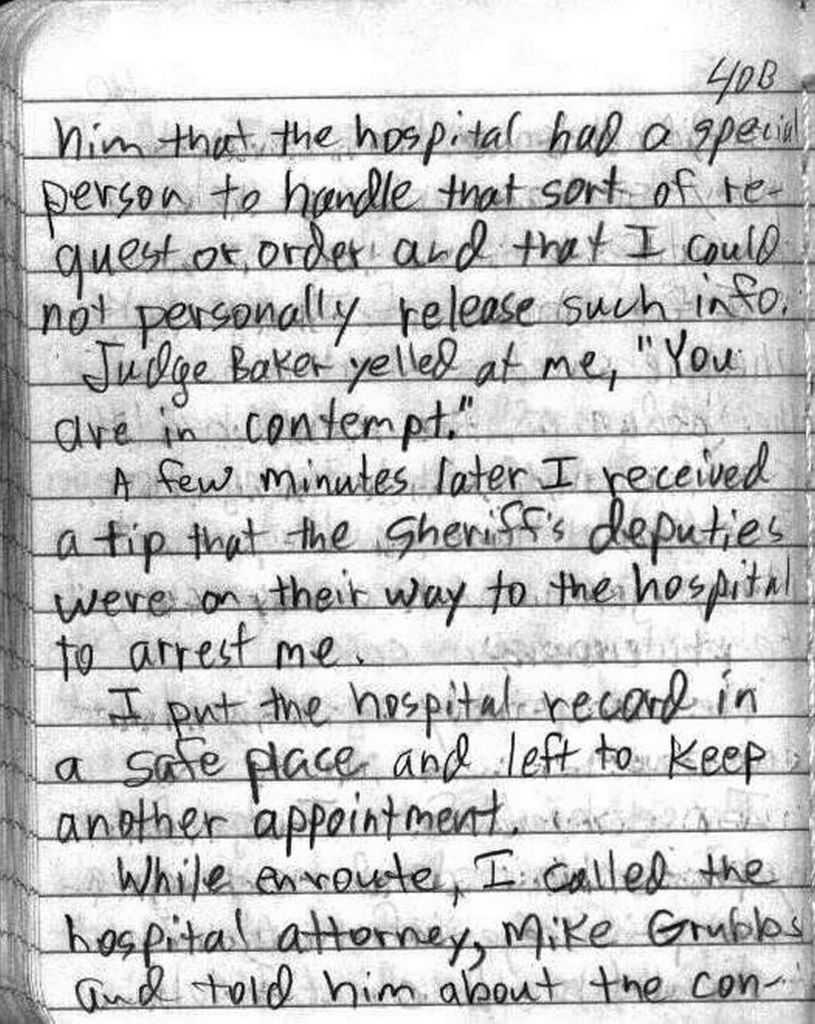 40B
him that the hospital had a special
person to handle that sort of re-
quest or order and that I could
not personally release such info.
Judge Baker yelled at me, "You
are in contempt."
A few minutes later I received
a tip that the Sheriff's deputies
were on their way to the hospital
to arrest me.
I put the hospital record in
a safe place and left to keep
another appointment.
While enroute, I called the
hospital attorney, Mike Grubbs
and told him about the con-